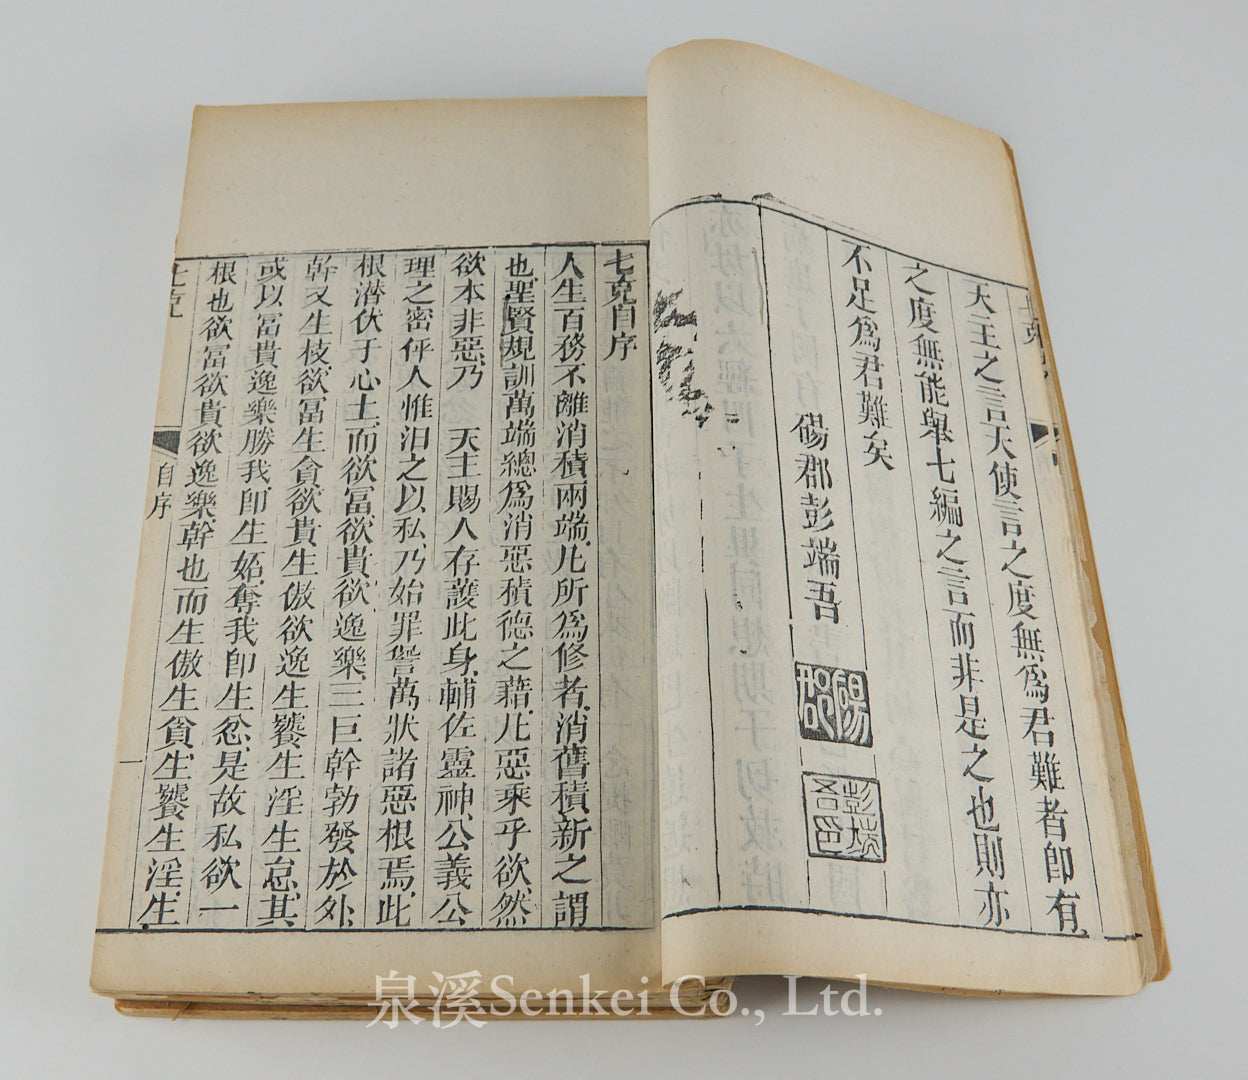 天王之言天使言之度無爲君難者卽有
之度無能與七編之言而非是之也則亦
不足爲君難矣
碭郡彭端吾
七克自序
人生百務不離消積兩端凡所爲修者消舊積新之謂
也聖賢規訓萬端總爲消惡積德之藉凡惡乘乎欲然
欲本非惡乃 天主賜人存護此身輔佐靈神公義公
理之密伻人惟汨之以私乃始罪諐萬狀諸惡根焉此
根潛伏于心土而欲冨欲貴欲逸樂三巨幹勃發於外
幹又生枝欲冨生貪欲貴生傲欲逸生饕生淫生怠其
或以冨貴逸樂勝我卽生妬奪我卽生忿是故私欲一
根也欲冨欲貴欲逸樂幹也而生傲生貪生饕生淫生
七克
自序
一
泉溪Senkei Co., Ltd.